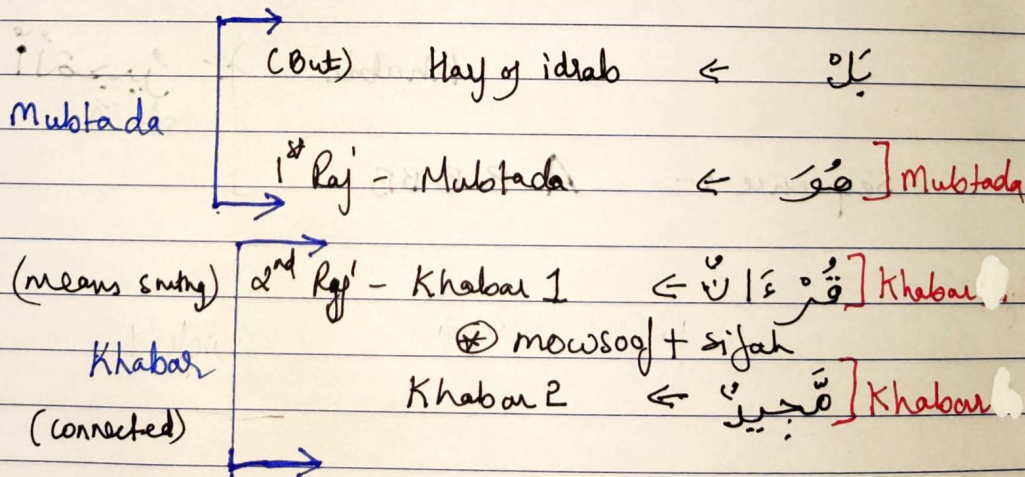 (But) Harf of idrab ← بَلْ
Mubtada
1st Raf' - Mubtada ← هُوَ ] Mubtada
(means smtng) 2nd Raf' - Khabar 1 ← قُرْءَانٌ ] Khabar
⊛ mowsoof + sifah
Khabar
Khabar 2 ← مَّجِيدٌ ] Khabar
(connected)